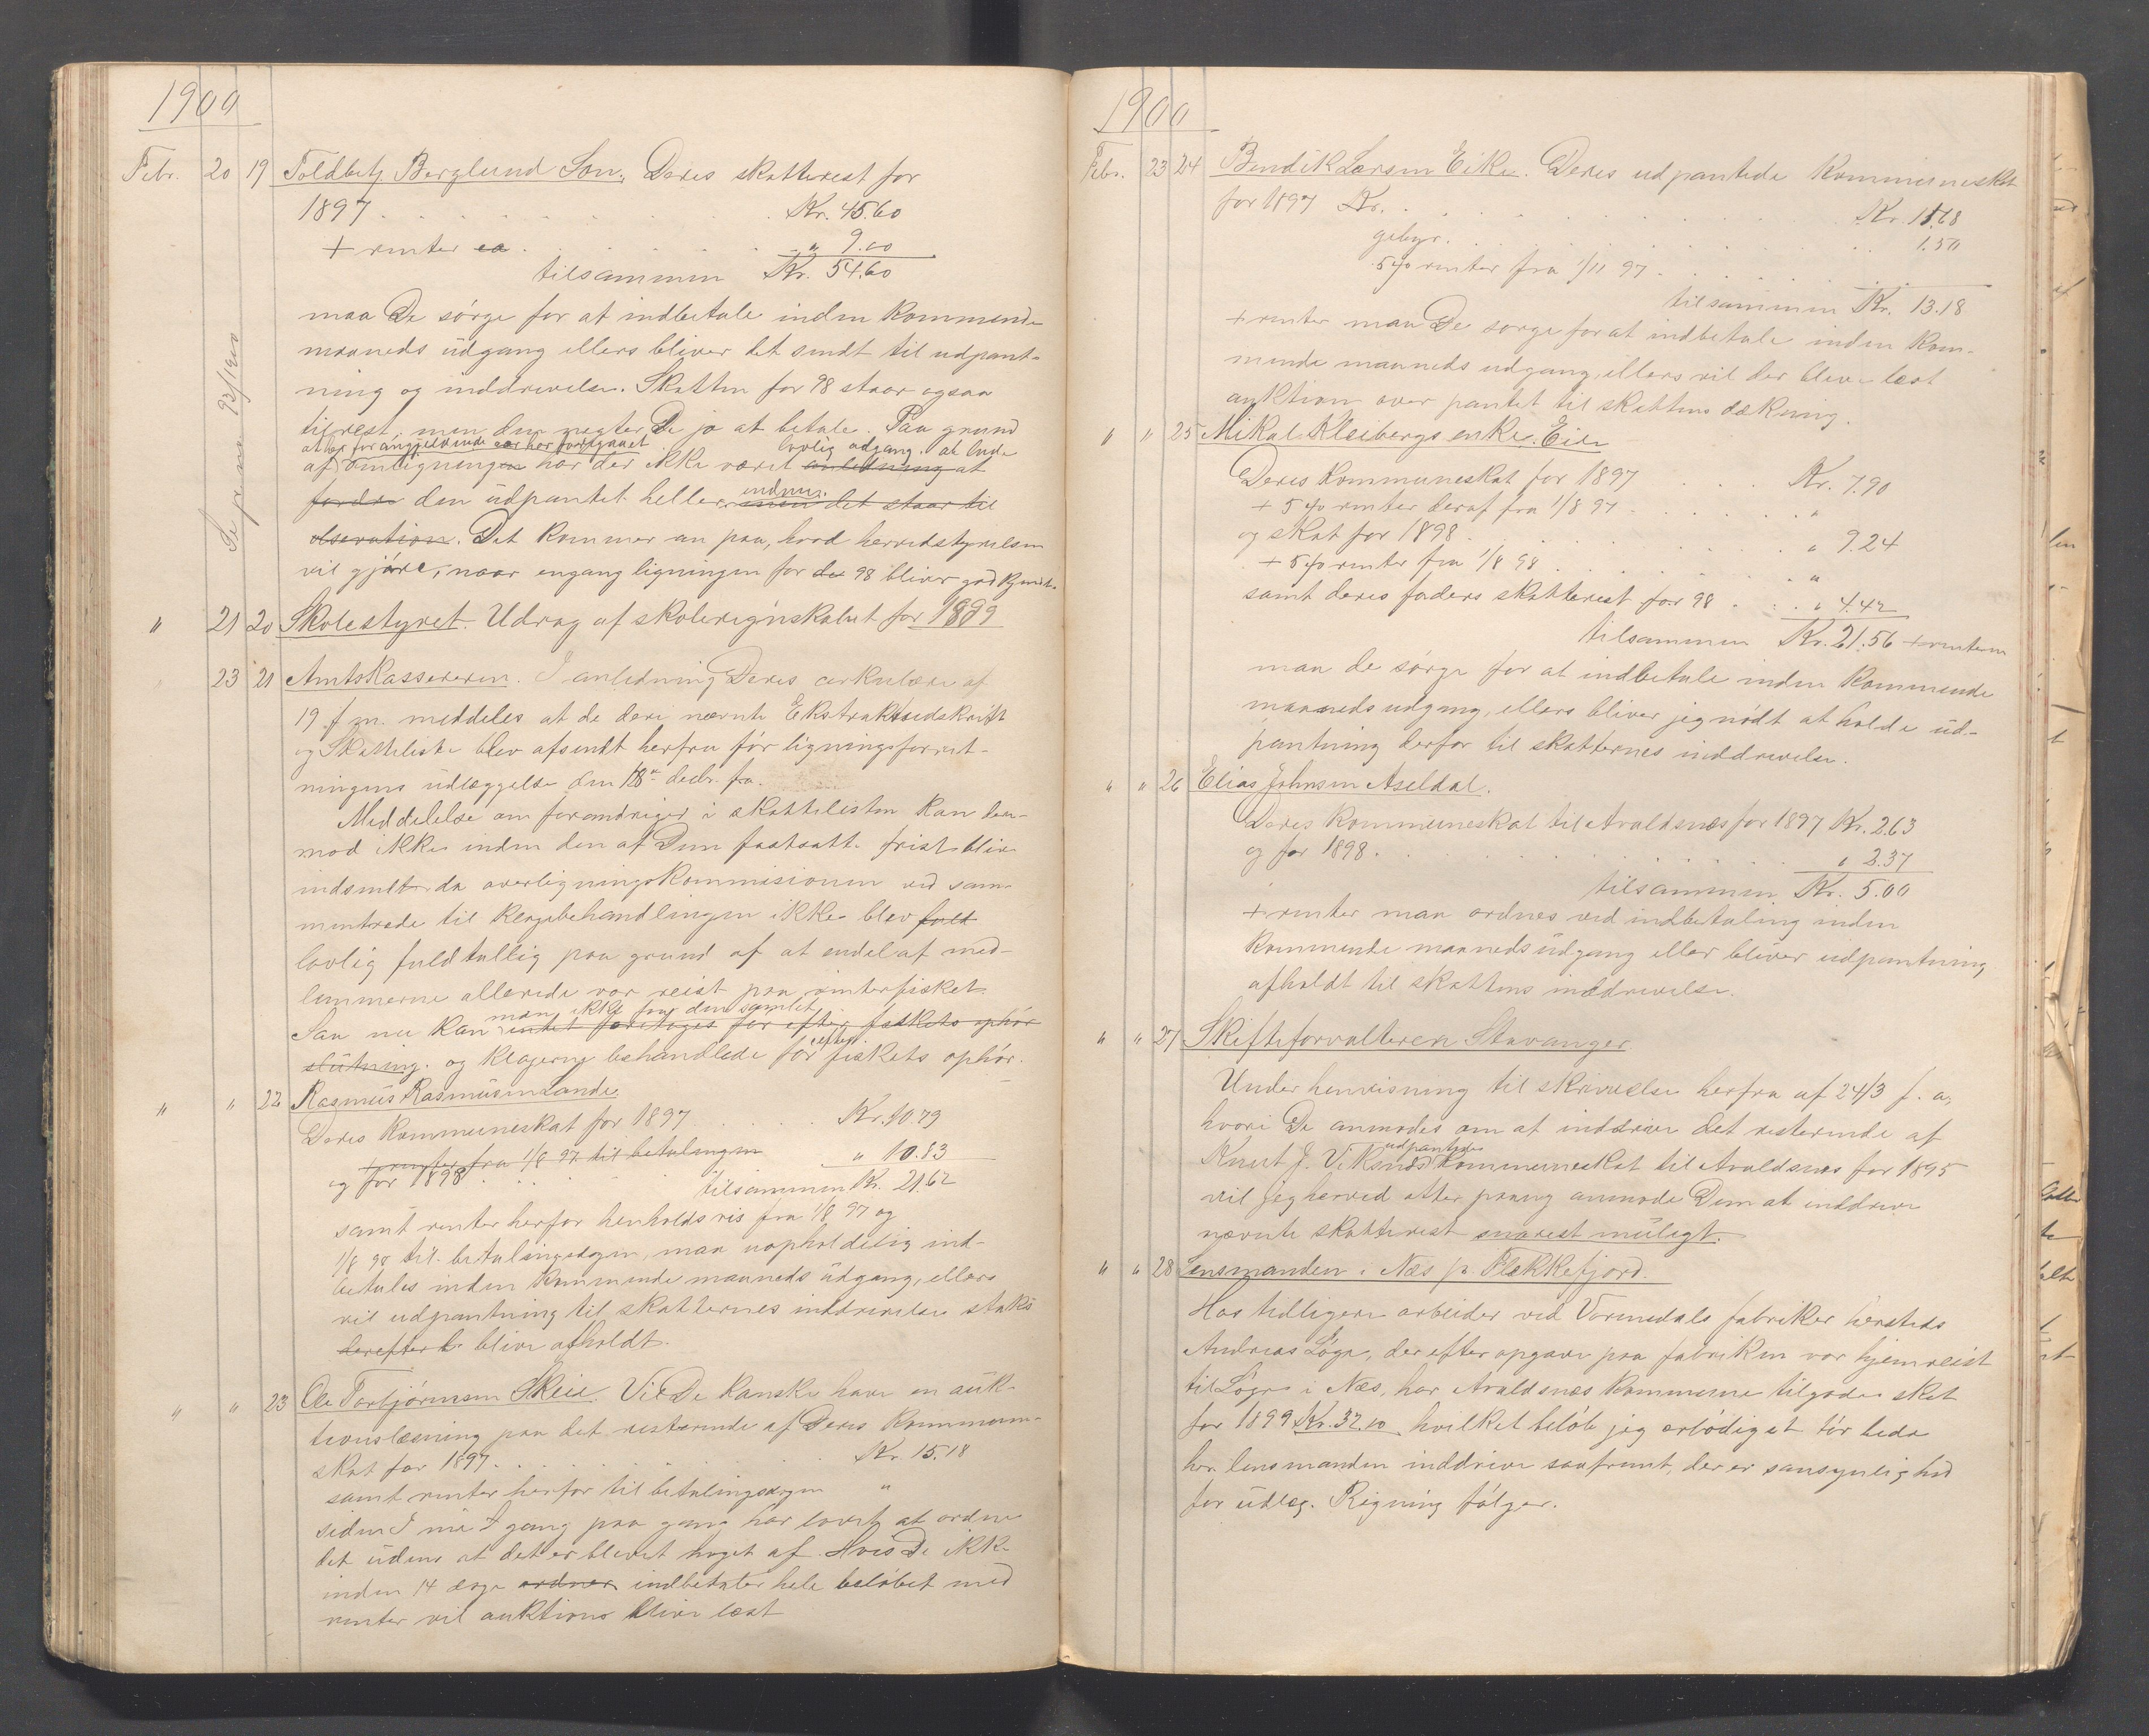 1900
Febr. 20 19 Toldbetj. Berglund Søn. Deres skatterest for
1897 . . . . . Kr. 45.60
+ renter ca . . . . " 9.00
tilsammen Kr. 54.60
maa De sørge for at indbetale inden kommende
maaneds udgang ellers bliver det sendt til udpant-
ning og inddrivelse. Skatten for 98 staar ogsaa
til rest, men den negter De jo at betale. Paa grund
lovlig adgang
af omligningen har der ikke været anledning at
fordre den udpantet heller endnu. men det staar til
observation. Det kommer an paa, hvad herredstyrelsen
vil gjøre, naar engang ligningen for de 98 bliver godkjendt.
" 21 20 Skolestyret. Udrag af skoleregnskabet for 1899
23 21 Amtskassereren. I anledning Deres cirkulære af
19 f.m. meddeles at de deri nævnte Ekstraktudskrift
og Skatteliste blev afsendt herfra før ligningsforret-
ningens udlæggelse den 18de decbr. f.a.
Meddelelse om forandringer i skattelisten kan der-
mod ikke inden den af Dem fastsatte frist blive
indsendt da overligningskommissionen ved sam-
mentræde til klagebehandlingen ikke blev fuld
lovlig fuldtallig paa grund af at endel af med-
lemmerne allerede var reist paa vinterfisket.
man ikke faa den samlet
Saa nu kan intet foretages før efter fiskets ophør
slutning. og klagerne behandlede før efter fiskets ophør.
" " 22 Rasmus Rasmussen Lande.
Deres kommuneskat for 1897 . . . . Kr. 10.79
+ renter fra 1/8 97 til betalingen
og for 1898 . . . . " 10.83
tilsammen Kr. 21.62
samt renter herfor henholdsvis fra 1/8 97 og
1/8 98 til betalingsdagen, maa uopholdelig ind-
betales inden kommende maaneds udgang, ellers
vil udpantning til skatternes inddrivelse straks
derefter b. blive afholdt.
" " 23 Ole Torbjørnsen Skeie. Vil De kanske have en auk-
tionslæsning paa det resterende af Deres kommune-
skat for 1897 . . . . Kr. 15.18
samt renter herfor til betalingsdagen "
siden I nu gang paa gang har lovet at ordne
det uden at det er blevet noget af. Hvis De ikke
inden 14 dage ordner indbetaler hele beløbet med
renter vil auktions blive læst
1900
Febr. 23 24 Bendik Larsen Eike. Deres udpantede kommuneskat
for 1897 Kr. . . . . Kr. 11.68
gebyr. . . . . 1.50
5% renter fra 1/11 97 . . . .
tilsammen Kr. 13.18
+ renter maa De sørge for at indbetale inden kom-
mende maaneds udgang, ellers vil der blive læst
auktion over pantet til skattens dækning.
" " 25 Mikal Kleibergs enke. Eide
Deres kommuneskat for 1897 . . . Kr. 7.90
+ 5% renter deraf fra 1/8 97 . . . "
og skat for 1898 . . . . " 9.24
+ 5% renter fra 1/8 98 . . . . "
samt deres faders skatterest for 98 . . . " 4.42
tilsammen Kr. 21.56 + renterne
maa de sørge for at indbetale inden kommende
maaneds udgang, ellers bliver jeg nødt at holde ud-
pantning derfor til skatternes inddrivelse.
" " 26 Elias Johnsen Aseldal.
Deres kommuneskat til Avaldsnes for 1897 Kr. 2.63
og for 1898 . . . . " 2.37
tilsammen Kr. 5.00
+ renter maa ordnes ved indbetaling inden
kommende maaneds udgang eller bliver udpantning
afholdt til skattens inddrivelse.
" " 27 Skifteforvalteren Stavanger
Under henvisning til skrivelse herfra af 24/3 f.a.,
hvori De anmodes om at inddrive det resterende af
Knut J. Viksnes udpantede kommuneskat til Avaldsnes for 1895
vil jeg herved atter paany anmode Dem at inddrive
nævnte skatterest snarest muligt.
" " 28 Lensmanden i Næs pr Flekkefjord.
Hos tidligere arbeider ved Vormedals fabriker hersteds
Andreas Løge, der efter opgave paa fabriken var hjemreist
til Løge i Næs, har Avaldsnes kommune tilgode skat
for 1899 Kr. 32.10, hvilket beløb jeg ærbødigst tør bede
hr. lensmanden inddrive saafremt, der er sansynlighed
for udlæg. Regning følger.